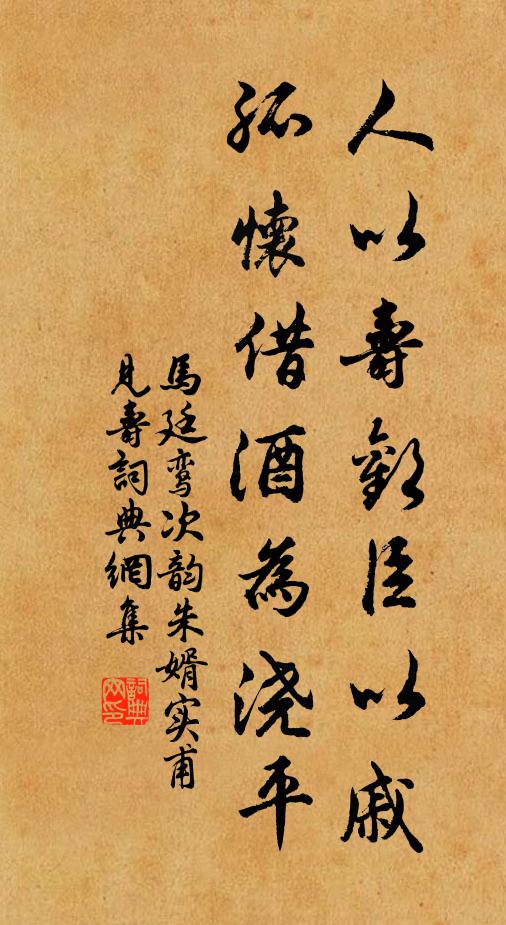 人以壽歡臣以戚
孤懷借酒為浇平
馬廷鸾次韵朱婿实甫
見壽詞典網集
詞典網印